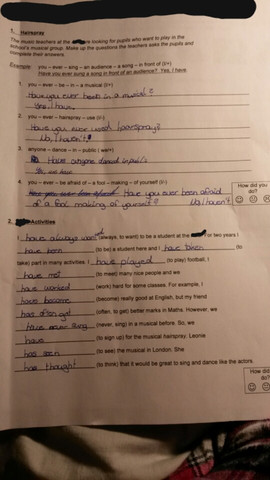 1. Hairspray
The music teachers at the are looking for pupils who want to play in the
school's musical group. Make up the questions the teachers asks the pupils and
complete their answers.
Example: you – ever – sing – an audience – a song – in front of (+)
Have you ever sung a song in front of an audience? Yes, I have.
1. you – ever – be – in – a musical (+)
Have you ever been in a musical?
Yes, I have.
2. you – ever – hairspray – use (-)
Have you ever used hairspray?
No, I haven't
3. anyone – dance – in – public
Have anyone danced in
Yes, we have
4. you – ever – be afraid of – a fool – making – of yourself (-)
Have you ever been afraid
of a fool making of yourself? No, I haven't
How did you
do?
2. Activities
I have always wanted (always, to want) to be a student at the for two years I
have been (to be) a student here and I have taken (to
take) part in many activities. I have played (to play) football, I
have met (to meet) many nice people and we
have worked (work) hard for some classes. For example, I
have become (become) really good at English, but my friend
has often got (often, to get) better marks in Maths. However, we
have never sung (never, sing) in a musical before. So, we
have (to sign up) for the musical hairspray. Leonie
has seen (to see) the musical in London. She
has thought (to think) that it would be great to sing and dance like the actors.
How did
do?